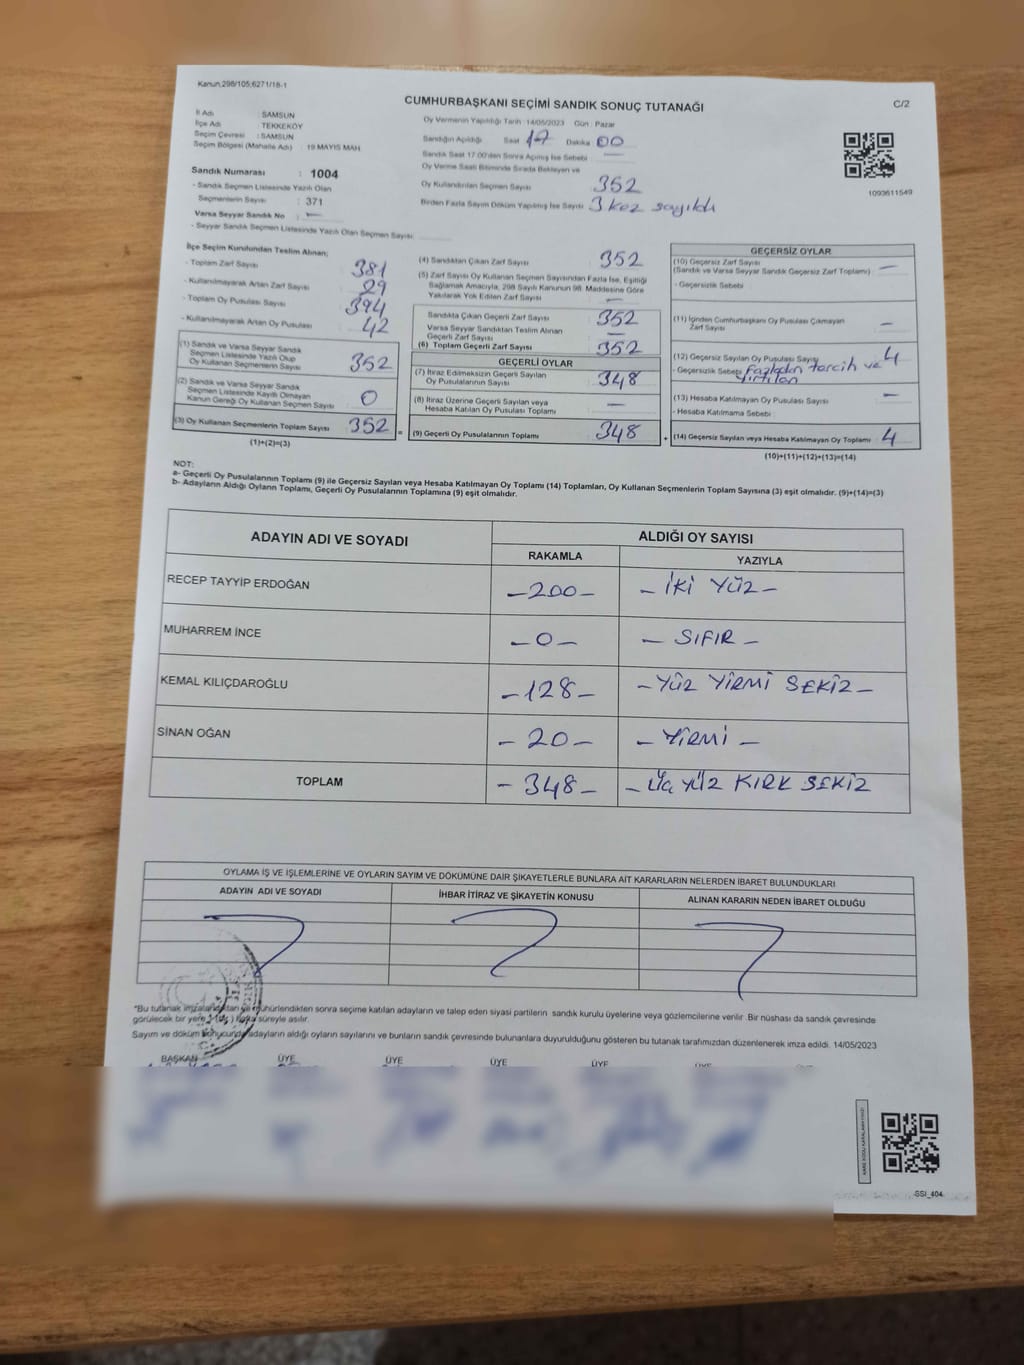 Kanun:298/105;6271/16-1
C/2
CUMHURBAŞKANI SEÇİMİ SANDIK SONUÇ TUTANAĞI
İl Adı : SAMSUN
İlçe Adı : TEKKEKÖY
Seçim Çevresi : SAMSUN
Seçim Bölgesi (Mahalle Adı) : 19 MAYIS MAH
Sandık Numarası : 1004
- Sandık Seçmen Listesinde Yazılı Olan
Seçmenlerin Sayısı : 371
Varsa Seyyar Sandık No : —
- Seyyar Sandık Seçmen Listesinde Yazılı Olan Seçmen Sayısı:
Oy Vermenin Yapıldığı Tarih : 14/05/2023 Gün : Pazar
Sandığın Açıldığı Saat 17 Dakika 00
Sandık Saat 17.00'den Sonra Açılmış İse Sebebi —
Oy Verme Saati Bitiminde Sırada Bekleyen ve
Oy Kullandırılan Seçmen Sayısı 352
Birden Fazla Sayım Döküm Yapılmış İse Sayısı 3 kez sayıldı
1093611549
İlçe Seçim Kurulundan Teslim Alınan;
- Toplam Zarf Sayısı 381
- Kullanılmayarak Artan Zarf Sayısı 29
- Toplam Oy Pusulası Sayısı 394
- Kullanılmayarak Artan Oy Pusulası 42
(1) Sandık ve Varsa Seyyar Sandık
Seçmen Listesinde Yazılı Olup
Oy Kullanan Seçmenlerin Sayısı 352
(2) Sandık ve Varsa Seyyar Sandık
Seçmen Listesinde Kayıtlı Olmayan
Kanun Gereği Oy Kullanan Seçmen Sayısı 0
(3) Oy Kullanan Seçmenlerin Toplam Sayısı 352 =
(1)+(2)=(3)
(4) Sandıktan Çıkan Zarf Sayısı 352
(5) Zarf Sayısı Oy Kullanan Seçmen Sayısından Fazla İse, Eşitliği
Sağlamak Amacıyla, 298 Sayılı Kanunun 98. Maddesine Göre
Yakılarak Yok Edilen Zarf Sayısı —
Sandıkta Çıkan Geçerli Zarf Sayısı 352
Varsa Seyyar Sandıktan Teslim Alınan
Geçerli Zarf Sayısı —
(6) Toplam Geçerli Zarf Sayısı 352
GEÇERLİ OYLAR
(7) İtiraz Edilmeksizin Geçerli Sayılan
Oy Pusulalarının Sayısı 348
(8) İtiraz Üzerine Geçerli Sayılan veya
Hesaba Katılan Oy Pusulası Toplamı —
(9) Geçerli Oy Pusulalarının Toplamı 348 +
GEÇERSİZ OYLAR
(10) Geçersiz Zarf Sayısı
(Sandık ve Varsa Seyyar Sandık Geçersiz Zarf Toplamı) —
- Geçersizlik Sebebi
(11) İçinden Cumhurbaşkanı Oy Pusulası Çıkmayan
Zarf Sayısı —
(12) Geçersiz Sayılan Oy Pusulası Sayısı 4
- Geçersizlik Sebebi Fazladan tercih ve
yırtılan
(13) Hesaba Katılmayan Oy Pusulası Sayısı —
- Hesaba Katılmama Sebebi
(14) Geçersiz Sayılan veya Hesaba Katılmayan Oy Toplamı 4
(10)+(11)+(12)+(13)=(14)
NOT:
a- Geçerli Oy Pusulalarının Toplamı (9) ile Geçersiz Sayılan veya Hesaba Katılmayan Oy Toplamı (14) Toplamları, Oy Kullanan Seçmenlerin Toplam Sayısına (3) eşit olmalıdır. (9)+(14)=(3)
b- Adayların Aldığı Oyların Toplamı, Geçerli Oy Pusulalarının Toplamına (9) eşit olmalıdır.
ADAYIN ADI VE SOYADI ALDIĞI OY SAYISI
RAKAMLA YAZIYLA
RECEP TAYYİP ERDOĞAN -200- - İKİ YÜZ -
MUHARREM İNCE -0- - SIFIR -
KEMAL KILIÇDAROĞLU -128- - YÜZ YİRMİ SEKİZ -
SİNAN OĞAN -20- - YİRMİ -
TOPLAM -348- - ÜÇ YÜZ KIRK SEKİZ
OYLAMA İŞ VE İŞLEMLERİNE VE OYLARIN SAYIM VE DÖKÜMÜNE DAİR ŞİKAYETLERLE BUNLARA AİT KARARLARIN NELERDEN İBARET BULUNDUKLARI
ADAYIN ADI VE SOYADI İHBAR İTİRAZ VE ŞİKAYETİN KONUSU ALINAN KARARIN NEDEN İBARET OLDUĞU
*Bu tutanak imzalandıktan ve mühürlendikten sonra seçime katılan adayların ve talep eden siyasi partilerin sandık kurulu üyelerine veya gözlemcilerine verilir. Bir nüshası da sandık çevresinde
görülecek bir yere süreyle asılır.
Sayım ve döküm sonucunda adayların aldığı oyların sayılarını ve bunların sandık çevresinde bulunanlara duyurulduğunu gösteren bu tutanak tarafımızdan düzenlenerek imza edildi. 14/05/2023
BAŞKAN ÜYE ÜYE ÜYE ÜYE ÜYE ÜYE
SSİ_404